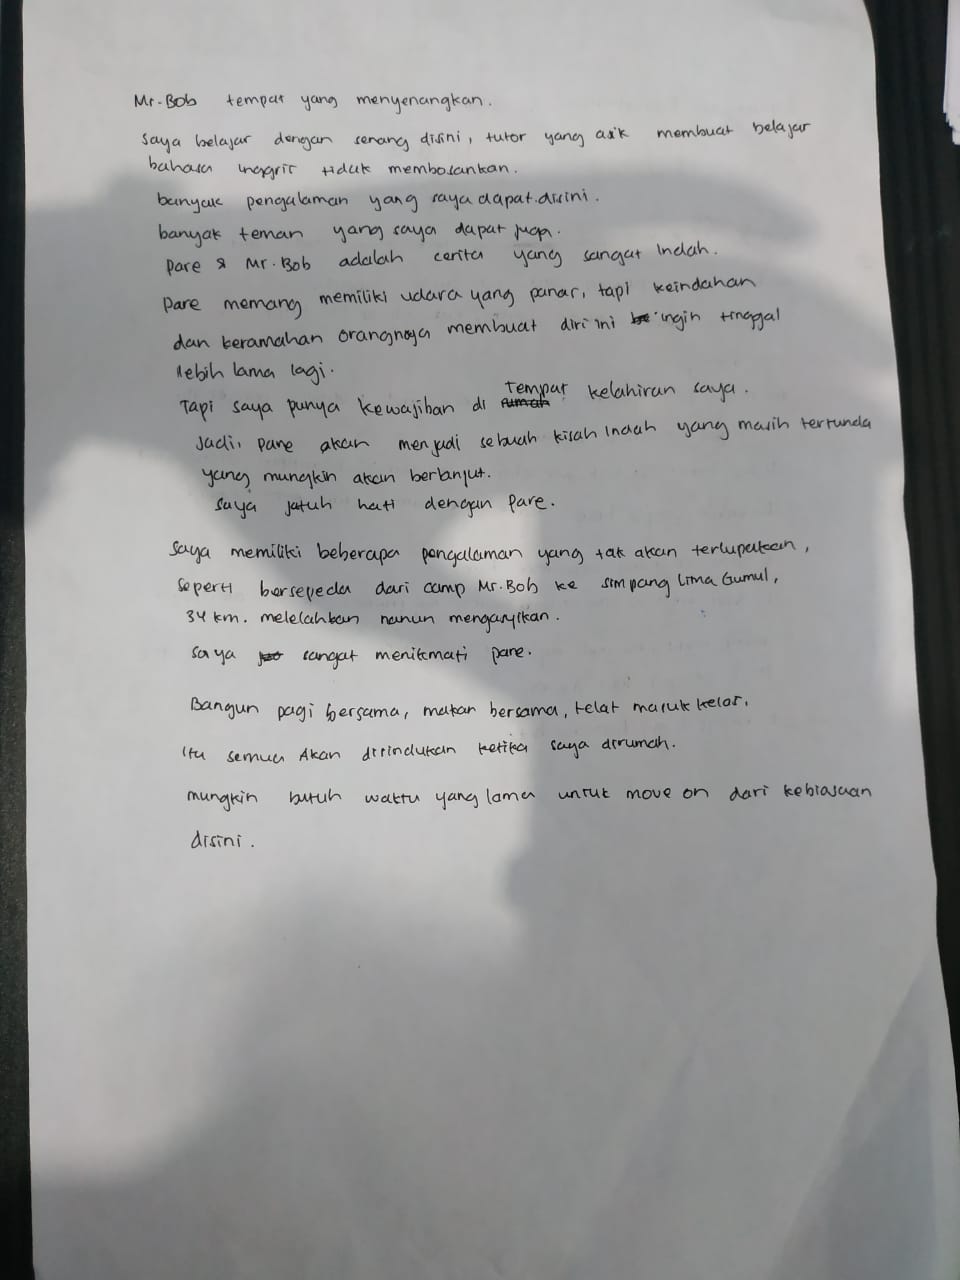 Mr. Bob tempat yang menyenangkan.
saya belajar dengan senang disini, tutor yang asik membuat belajar
bahasa inggris tidak membosankan.
banyak pengalaman yang saya dapat disini.
banyak teman yang saya dapat juga.
Pare & Mr. Bob adalah cerita yang sangat Indah.
Pare memang memiliki udara yang panas, tapi keindahan
dan keramahan orangnya membuat diri ini ingin tinggal
lebih lama lagi.
Tapi saya punya kewajiban di tempat kelahiran saya.
Jadi, Pare akan menjadi sebuah kisah Indah yang masih tertunda
yang mungkin akan berlanjut.
saya jatuh hati dengan Pare.
saya memiliki beberapa pengalaman yang tak akan terlupakan,
seperti bersepeda dari camp Mr. Bob ke simpang Lima Gumul,
34 km. melelahkan namun mengasyikan.
saya sangat menikmati pare.
Bangun pagi bersama, makan bersama, telat masuk kelas,
itu semua Akan dirindukan ketika saya dirumah.
mungkin butuh waktu yang lama untuk move on dari kebiasaan
disini.